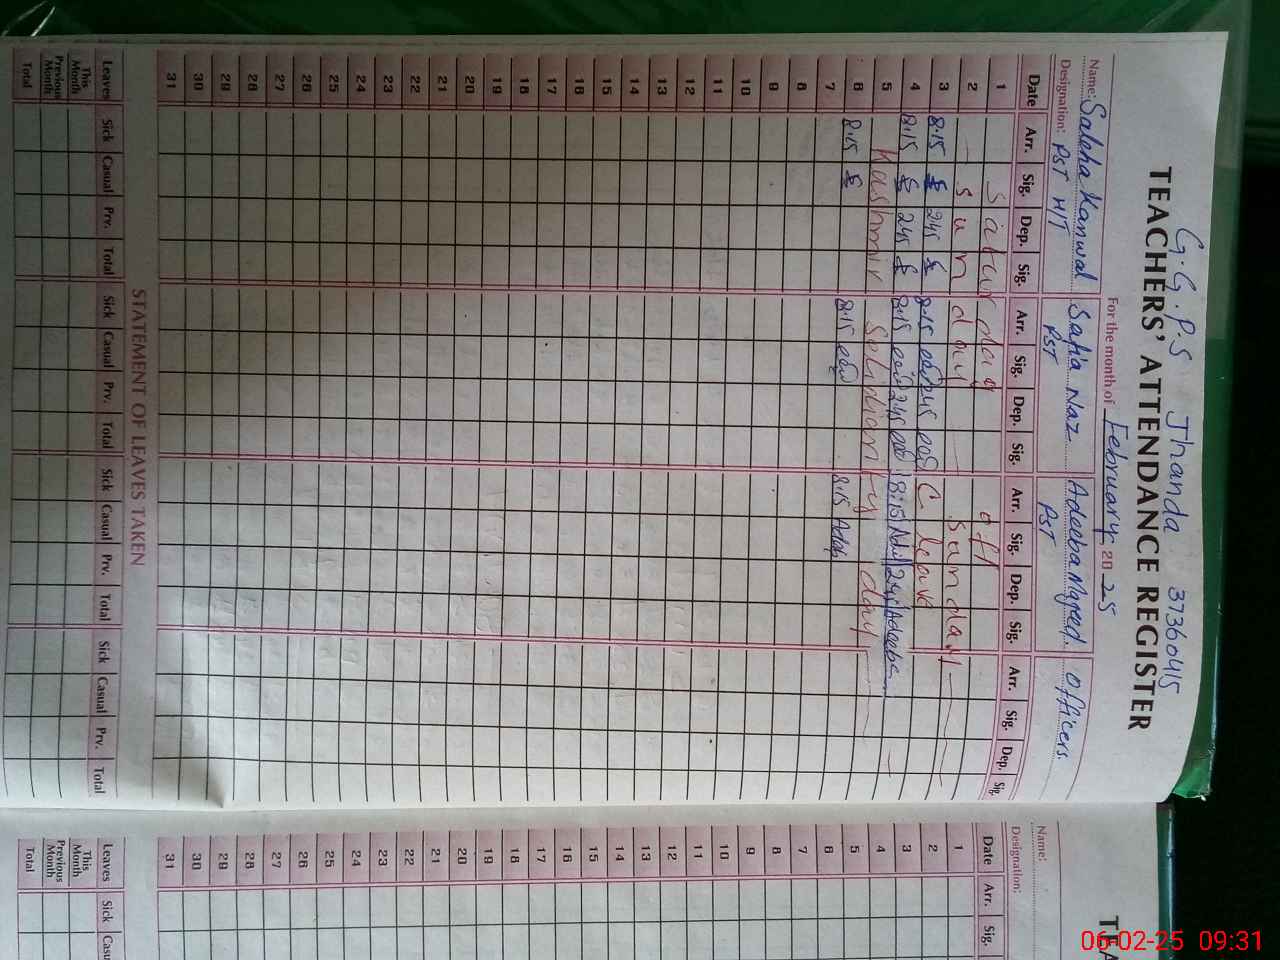 G.G.P.S Jhanda 37360415
TEACHERS' ATTENDANCE REGISTER
For the month of February 2025
Name: Saleha Kanwal Safia Naz Adeeba Majeed. Officers.
Designation: PST H/T PST PST
Date Arr. Sig. Dep. Sig. Arr. Sig. Dep. Sig. Arr. Sig. Dep. Sig. Arr. Sig. Dep. Sig.
1 Saturday off
2 Sunday Sunday
3 8:15 245 8:15 245 C leave
4 8:15 245 8:15 245 8:15 245 Adeeba
5 Kashmir Solidianty day
6 8:15 8:15 8:15
7
8
9
10
11
12
13
14
15
16
17
18
19
20
21
22
23
24
25
26
27
28
29
30
31
STATEMENT OF LEAVES TAKEN
Leaves Sick Casual Prv. Total Sick Casual Prv. Total Sick Casual Prv. Total Sick Casual Prv. Total
This Month
Previous Month
Total
TEA
Name:
Designation:
Date Arr. Sig.
1
2
3
4
5
6
7
8
9
10
11
12
13
14
15
16
17
18
19
20
21
22
23
24
25
26
27
28
29
30
31
Leaves Sick Casu
This Month
Previous Month
Total
06-02-25 09:31